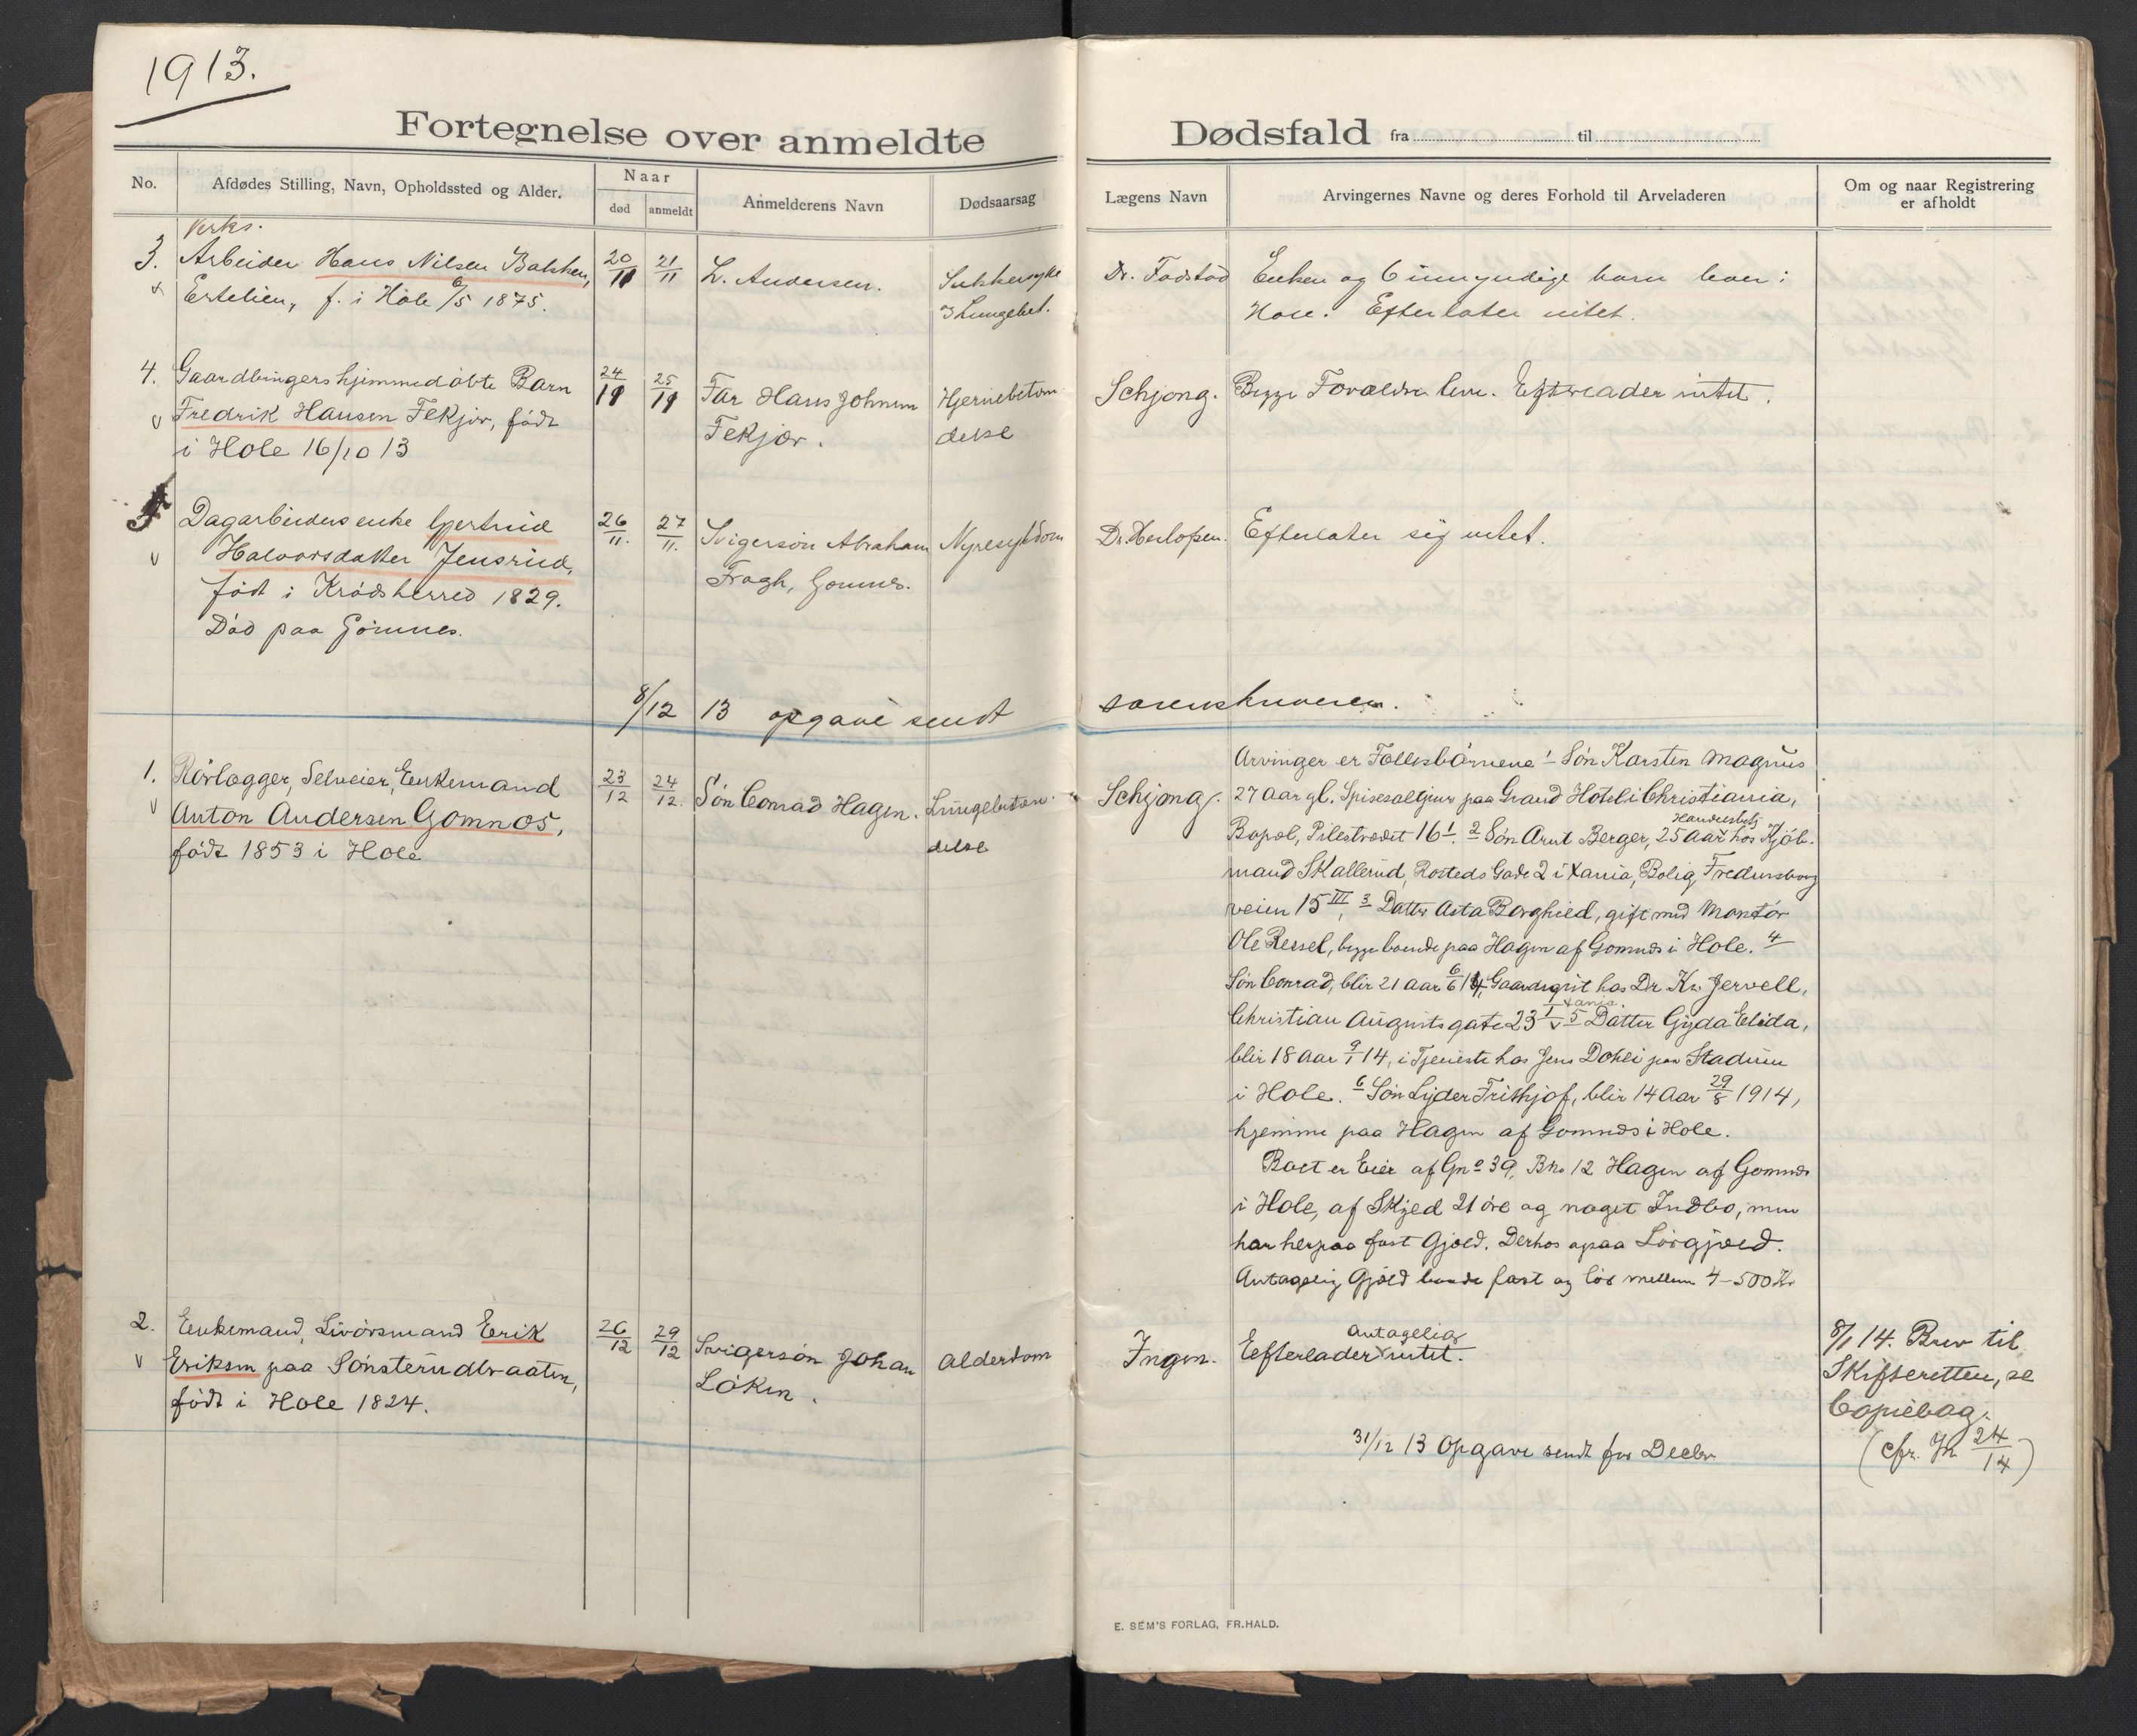 1913.
Fortegnelse over anmeldte Dødsfald fra til
No.
Afdødes Stilling, Navn, Opholdssted og Alder.
Naar
død
anmeldt
Anmelderens Navn
Dødsaarsag
Lægens Navn
Arvingernes Navne og deres Forhold til Arveladeren
Om og naar Registrering
er afholdt
Verks.
3. Arbeider Hans Nilsen
Ertelien, f. i Hole 6/5 1875.
20/11
21/11
L. Andersen.
Sukkersyke
Lungebet.
Dr. Fodstad
Enken og 6 umyndige barn lever i
Hole. Efterlater intet.
4. Gaardbrugers hjemmedøbte Barn
v Fredrik Hansen Fekjær, født
i Hole 16/10 13
24/11
25/11
Far Hans Johnsen
Fekjær.
Hjernebetæn
delse
Schjong.
Begge Forældre leve. Efterlader intet.
5 Dagarbeiders enke Gjertrud
Halvorsdatter Jensrud,
v
født i Krødsherred 1829.
Død paa Gomnes.
26/11.
27/11.
Svigersøn Abraham
Fragh, Gomnes.
Nyresygdom
Dr. Herlofsen.
Efterlater sig intet.
8/12 13 opgave sendt sorenskriveren.
1. Rørlægger, Selveier, Enkemand
v Anton Andersen Gomnæs,
født 1853 i Hole
23/12
24/12.
Søn Conrad Hagen.
Lungebetæn-
delse
Schjong.
Arvinger er Fællesbørnene 1 Søn Karsten Magnus
27 Aar gl., Spisesaltjener paa Grand Hotel i Christiania,
Bopæl, Pilestrædet 16 I. 2 Søn Arnt Berger, 25 Aar hos Kjøb-
Handelsbetj
mand Skallerud, Rosteds Gade 2 i Xania, Bolig, Fredensborg
veien 15 III, 3 Datter Asta Borghild, gift med Montør
Ole Ressel, begge boende paa Hagen af Gomnæs i Hole. 4
Søn Conrad, blir 21 Aar 6/6 14, Gaardsgut hos Dr Kr. Jervell,
Xania.
Christian Augusts gate 23 I v 5 Datter Gyda Elida,
blir 18 Aar 9/1 14, i Tjeneste hos Jens Dohli paa Stadum
i Hole. 6 Søn Lyder Frithjof, blir 14 Aar 29/8 1914,
hjemme paa Hagen af Gomnæs i Hole.
Boet er Eier af Gno 39, Bno 12 Hagen af Gomnæs
i Hole, af Skjed 21 øre og noget Indbo, men
har herpaa fast Gjæld. Derhos ogsaa Løsgjæld.
Antagelig Gjæld baade fast og løs mellem 4-500 Kr
2. Enkemand, Livørsmand Erik
v Eriksen paa Sønsterudbraaten,
født i Hole 1824.
26/12
29/12
Svigersøn Johan
Løken.
Alderdom
Ingen.
antagelig
Efterlader v intet.
8/1 14. Brev til
Skifteretten, se
Copiebog.
(cfr. Jn 24/14)
31/12 13 Opgave sendt for Decbr
E. SEM'S FORLAG, FR.HALD.